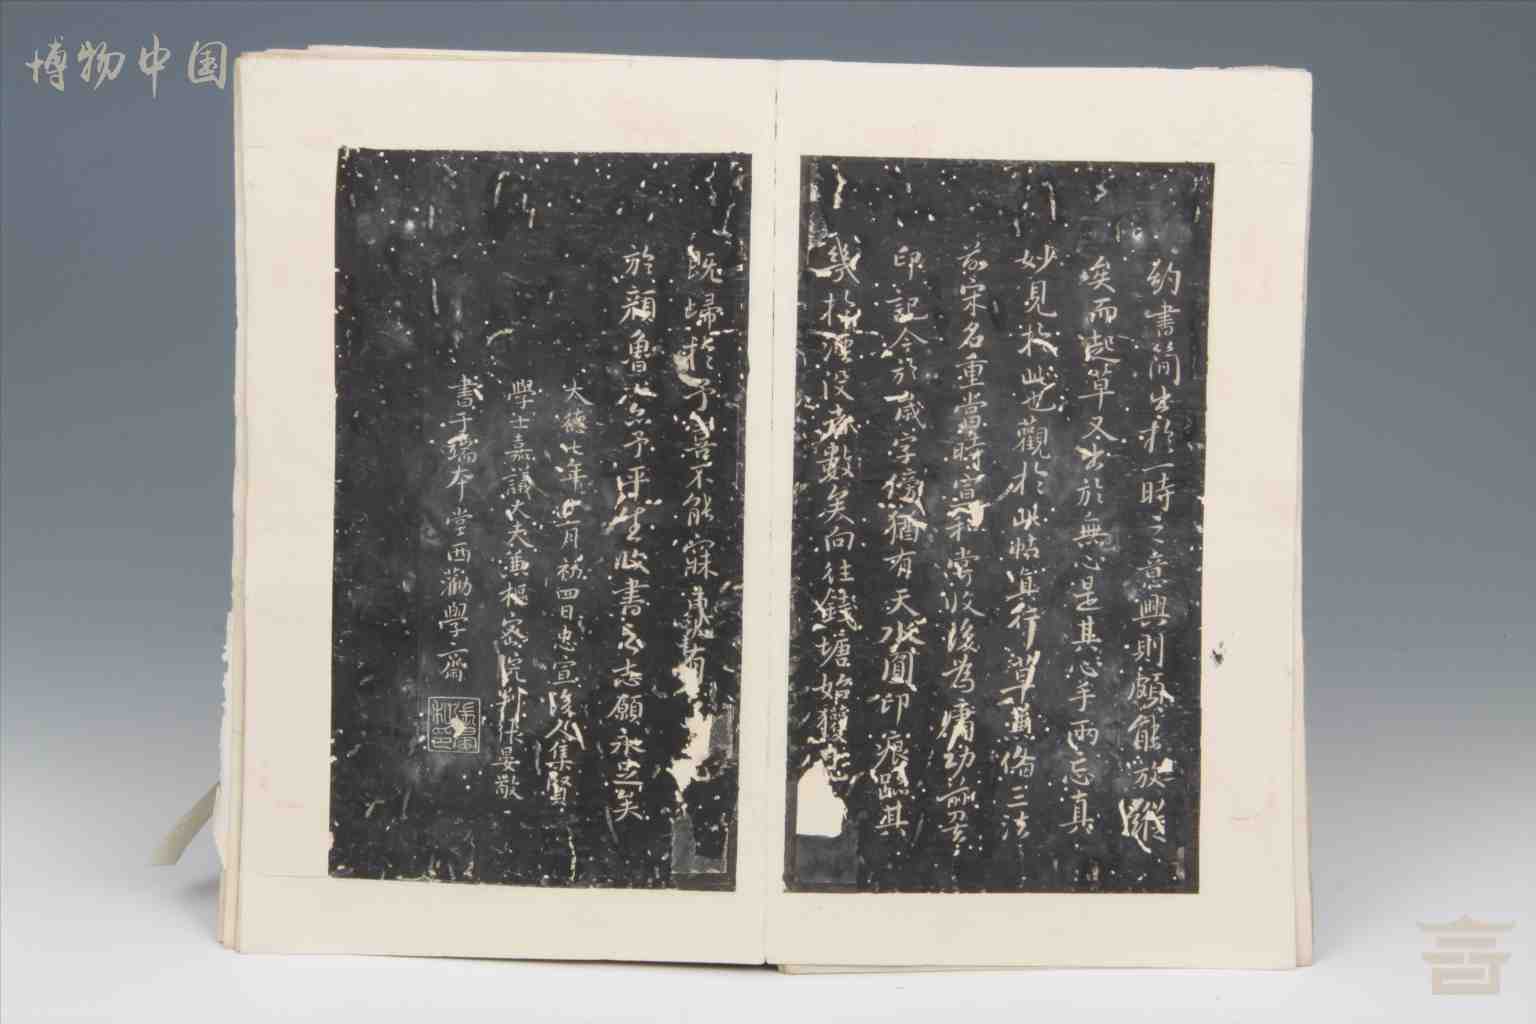 博物中国
勢書簡出於一時之意興則頗能放縱
矣而起草又出於無心是其心手兩忘真
妙見於此也觀於此帖真行草兼備三法
前宋名重當時宣和嘗收後為庸幼所
印記今於歲字傍猶有天水圓印痕蹤其
幾於湮沒者數矣向往錢塘始獲
既歸於予喜不能寐
於顏魯公予平生收書之志願永足矣
大德七年二月初四日忠宣後人集賢
學士嘉議大夫兼樞密院判張晏敬
書于瑞本堂西勸學齋
張晏
私印